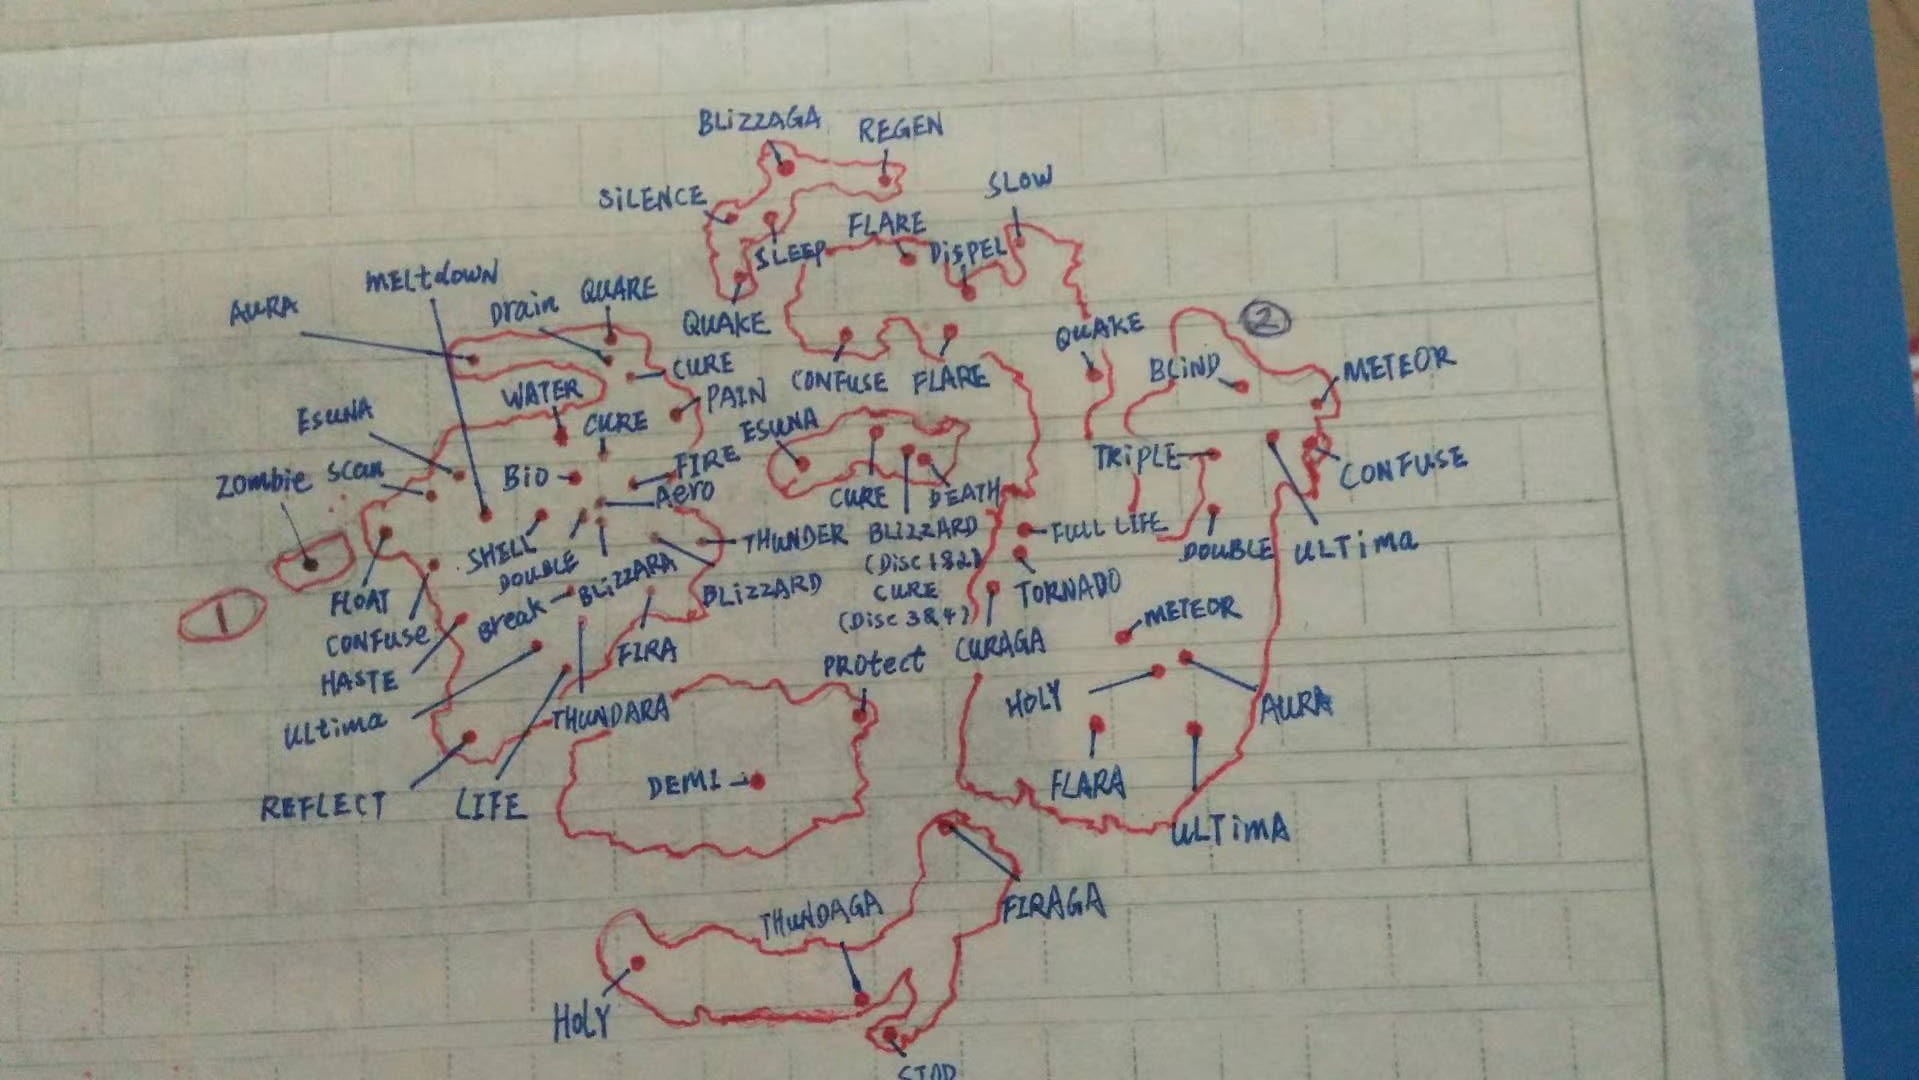 BLIZZAGA
REGEN
SILENCE
SLOW
FLARE
SLEEP
DISPEL
MELtdowN
AURA
Drain
QUARE
QUAKE
QUAKE
2
CURE
CONFUSE
FLARE
BLIND
METEOR
WATER
PAIN
ESUNA
CURE
ESUNA
Zombie
scan
Bio
FIRE
Aero
CURE
DEATH
TRIPLE
CONFUSE
SHELL
DOUBLE
THUNDER
BLIZZARD
(Disc 1&2)
CURE
(Disc 3&4)
FULL LIFE
DOUBLE
ULTima
1
FLOAT
CONFUSE
HASTE
Break
BLIZZARA
BLIZZARD
TORNADO
METEOR
FIRA
PROtect
CURAGA
HOLY
AURA
ULtima
THUNDARA
REFLECT
LIFE
DEMI
FLARA
ULTimA
THUNDAGA
FIRAGA
HOLY
STOP